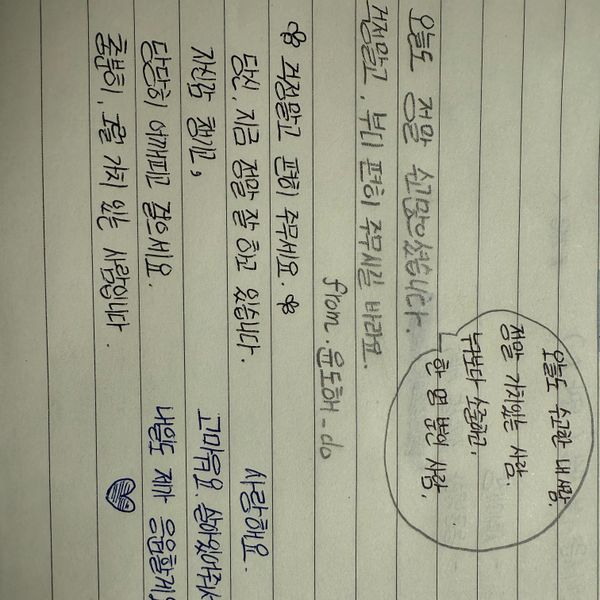 오늘도 수고한 내 사람,
정말 가치있는 사람.
누구보다 소중하고,
한 명 뿐인 사람,
오늘도 정말 수고많으셨습니다.
걱정말고, 부디 편히 주무시길 바라요.
from. 윤도해_do
걱정말고 편히 주무세요.
당신, 지금 정말 잘 하고 있습니다.
자신감 챙기고,
당당히 어깨피고 걸으세요.
충분히, 그럴 가치 있는 사람입니다.
사랑해요.
고마워요. 살아있어주셔
내일도 제가 응원할게요